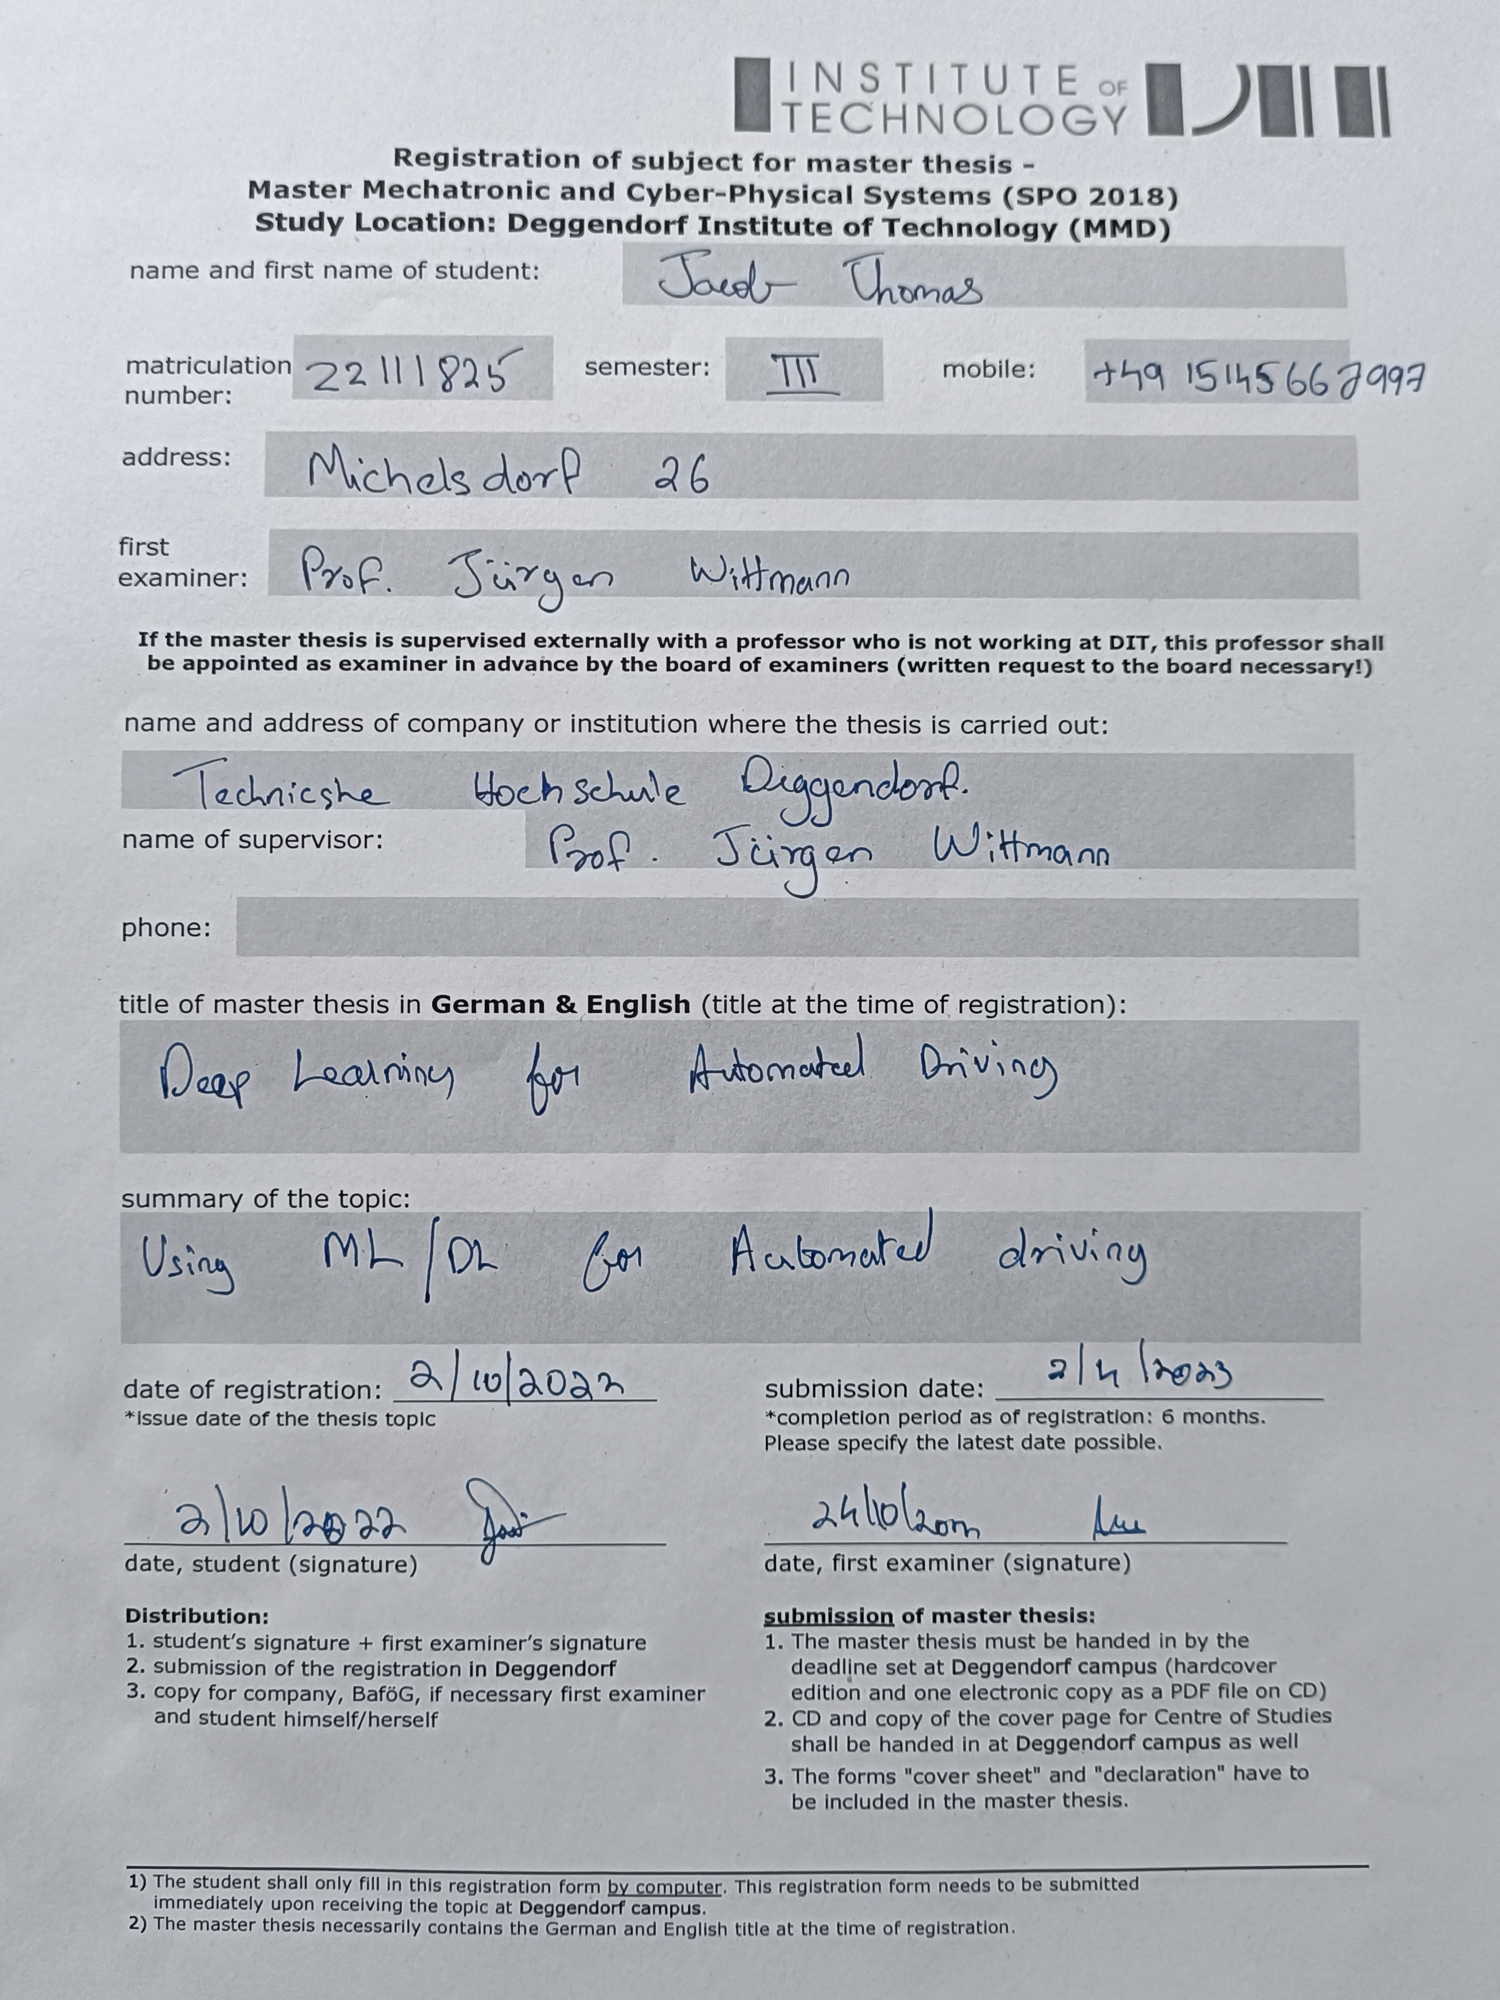 INSTITUTE OF
TECHNOLOGY
Registration of subject for master thesis -
Master Mechatronic and Cyber-Physical Systems (SPO 2018)
Study Location: Deggendorf Institute of Technology (MMD)
name and first name of student: Jacob Thomas
matriculation number: 22111825 semester: III mobile: +49 15145667997
address: Michelsdorf 26
first examiner: Prof. Jürgen Wittmann
If the master thesis is supervised externally with a professor who is not working at DIT, this professor shall
be appointed as examiner in advance by the board of examiners (written request to the board necessary!)
name and address of company or institution where the thesis is carried out:
Technicshe Hochschule Diggendorf.
name of supervisor: Prof. Jürgen Wittmann
phone:
title of master thesis in German & English (title at the time of registration):
Deep Learning for Automated Driving
summary of the topic:
Using ML/DL for Automated driving
date of registration: 2/10/2022 submission date: 2/4/2023
*issue date of the thesis topic
*completion period as of registration: 6 months.
Please specify the latest date possible.
2/10/2022
24/10/2022
date, student (signature)
date, first examiner (signature)
Distribution:
1. student's signature + first examiner's signature
2. submission of the registration in Deggendorf
3. copy for company, BaföG, if necessary first examiner
and student himself/herself
submission of master thesis:
1. The master thesis must be handed in by the
deadline set at Deggendorf campus (hardcover
edition and one electronic copy as a PDF file on CD)
2. CD and copy of the cover page for Centre of Studies
shall be handed in at Deggendorf campus as well
3. The forms "cover sheet" and "declaration" have to
be included in the master thesis.
1) The student shall only fill in this registration form by computer. This registration form needs to be submitted
immediately upon receiving the topic at Deggendorf campus.
2) The master thesis necessarily contains the German and English title at the time of registration.